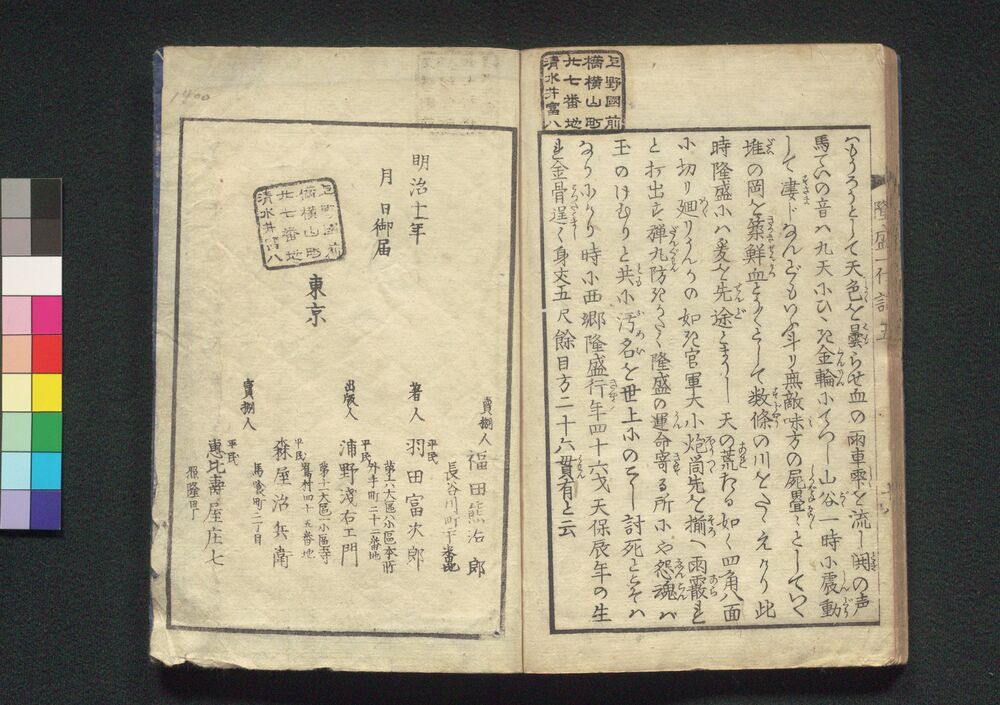 上野國前
橋横山町
廿七番地
清水井富八
天色を曇らせ血の雨車雫を流し閧の声
馬ていの音ハ九天小ひゞき金輪小てつし山谷一時小震動
して凄ジなんどもいふ斗り無敵味方の屍畳々としていく
堆の岡を築鮮血とうとうとして数條の川をたゝえけり此
時隆盛ハ爰を先途と 天の荒たる如く四角八面
小切り廻りけるかの如き官軍大小炮筒先を揃へ雨霰と
と打出す弾丸防きがたく隆盛の運命寄る所小や怨魂ハ
玉のけむりと共小汚名を世上小のこし討死とこそハ
なり小けり時小西郷隆盛行年四十六才天保辰年の生
金骨逞く身丈五尺餘目方二十六貫有と云
隆盛一代記 五
明治十一年
月 日御届
上野國前
橋横山町
廿七番地
清水井富八
東京
賣捌人
長谷川町
福田熊治郎
著人
平民
羽田富次郎
第六大區八小區本所
外手町二十二番地
出版人
平民
浦野浅右エ門
第十一大區一小區寺
嶌村四十五番地
平民
森屋治兵衛
馬喰町二丁目
賣捌人
平民
恵比壽屋庄七
1400